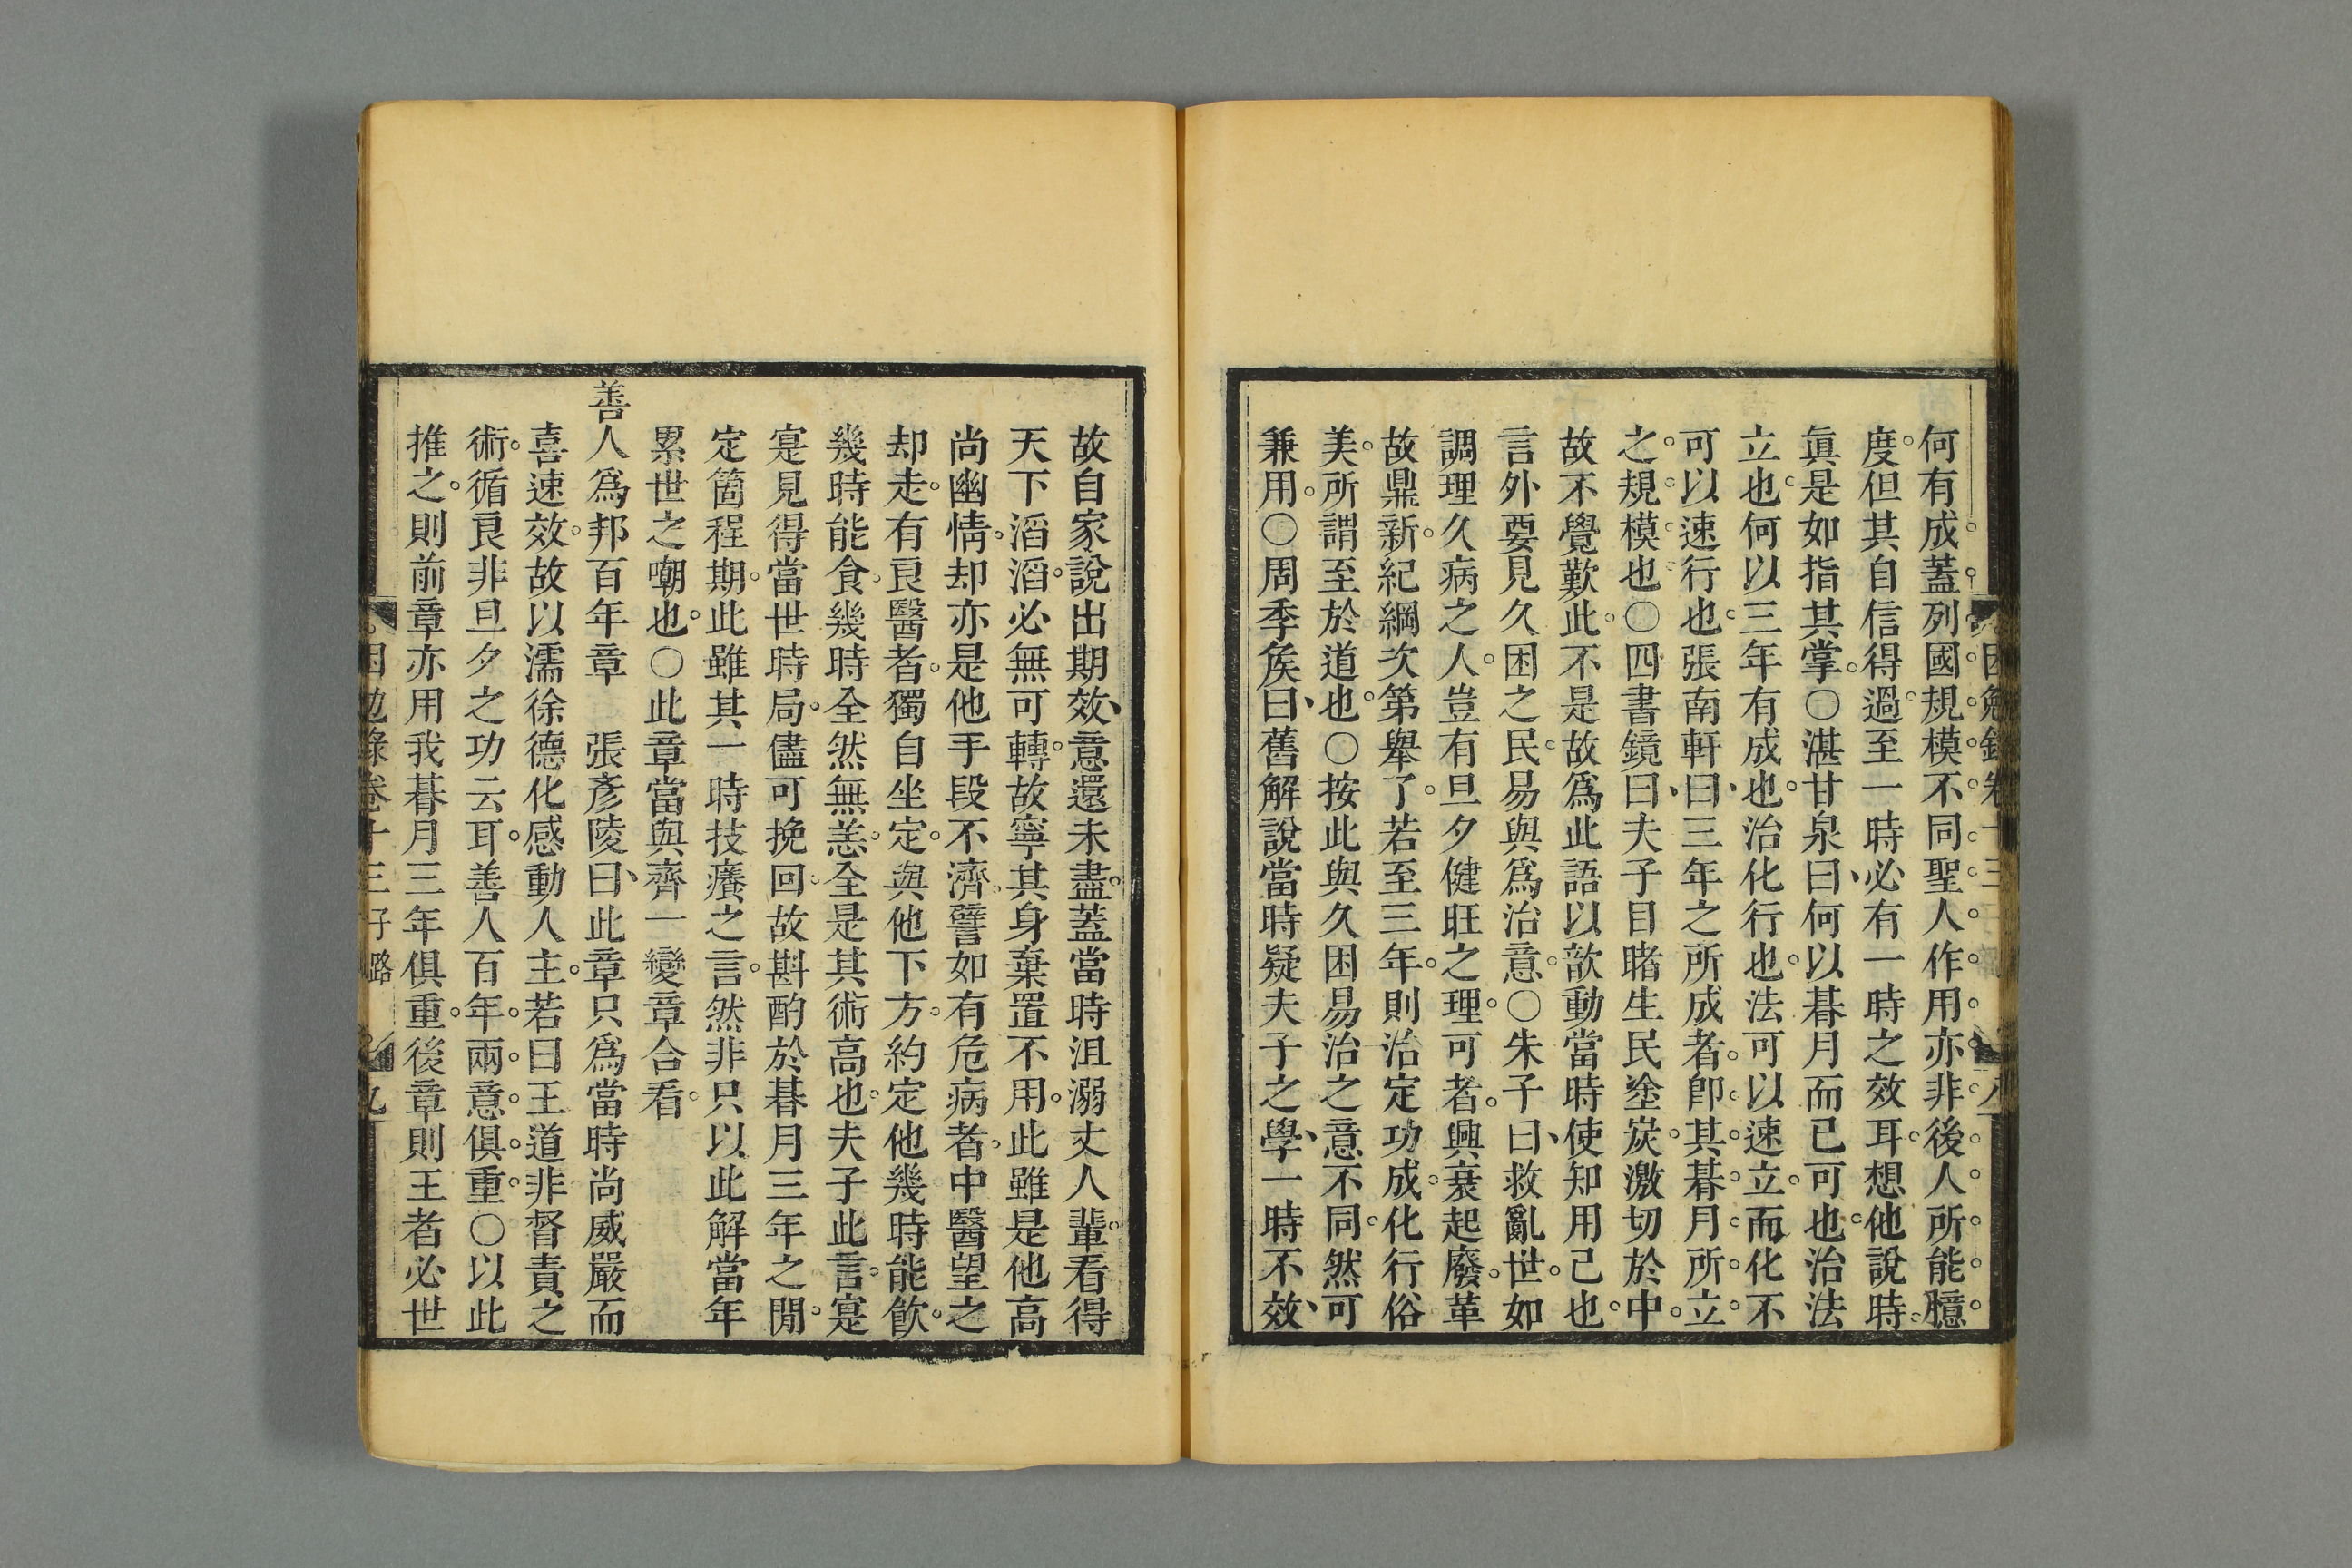 何有成蓋列國規模不同聖人作用亦非後人所能臆
度但其自信得過至一時必有一時之效耳想他說時
眞是如指其掌○湛甘泉曰何以朞月而已可也治法
立也何以三年有成也治化行也法可以速立而化不
可以速行也張南軒曰三年之所成者卽其朞月所立
之規模也○四書鏡曰夫子目睹生民塗炭激切於中
故不覺歎此不是故爲此語以歆動當時使知用己也
言外要見久困之民易與爲治意○朱子曰救亂世如
調理久病之人豈有旦夕健旺之理可者興衰起廢革
故鼎新紀綱次第舉了若至三年則治定功成化行俗
美所謂至於道也○按此與久困易治之意不同然可
兼用○周季矦曰舊解說當時疑夫子之學一時不效
故自家說出期效意還未盡蓋當時沮溺丈人輩看得
天下滔滔必無可轉故寧其身棄置不用此雖是他高
尚幽情却亦是他手段不濟譬如有危病者中醫望之
却走有良醫者獨自坐定與他下方約定他幾時能飲
幾時能食幾時全然無恙全是其術高也夫子此言寔
寔見得當世時局儘可挽回故斟酌於朞月三年之閒
定箇程期此雖其一時技癢之言然非只以此解當年
累世之嘲也○此章當與齊一變章合看
善人爲邦百年章　張彥陵曰此章只爲當時尚威嚴而
喜速效故以濡徐德化感動人主若曰王道非督責之
術循良非旦夕之功云耳善人百年兩意俱重○以此
推之則前章亦用我朞月三年俱重後章則王者必世
困勉錄卷十三　子路　九